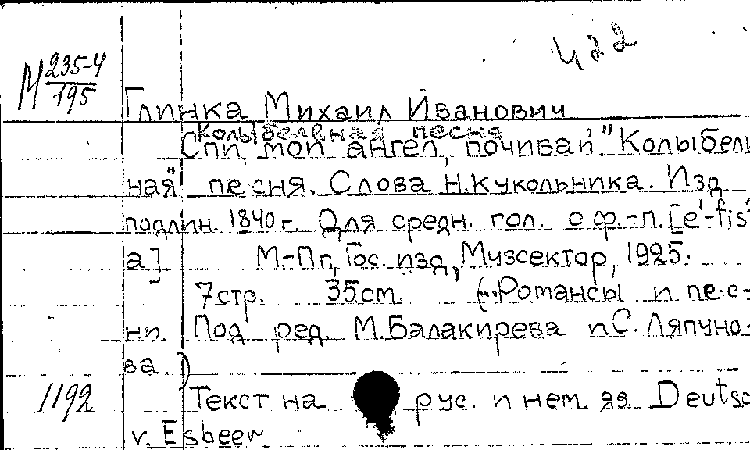 422
М 235-4
195
Глинка Михаил Иванович
Колыбельная песня
Спи, мой ангел, почивай." Колыбель
ная" песня. Слова Н.Кукольника. Изд
подлин. 1840 г. Для средн. гол. с ф.-п. [e'-fis'
а] М-Пг, Гос. изд, Музсектор, 1925.
7стр. 35cm (Романсы и пес-
ни. Под ред. М.Балакирева и С. Ляпуно-
ва.)
1192 Текст на рус. и нем. яз Deutsc
v. Esbeer